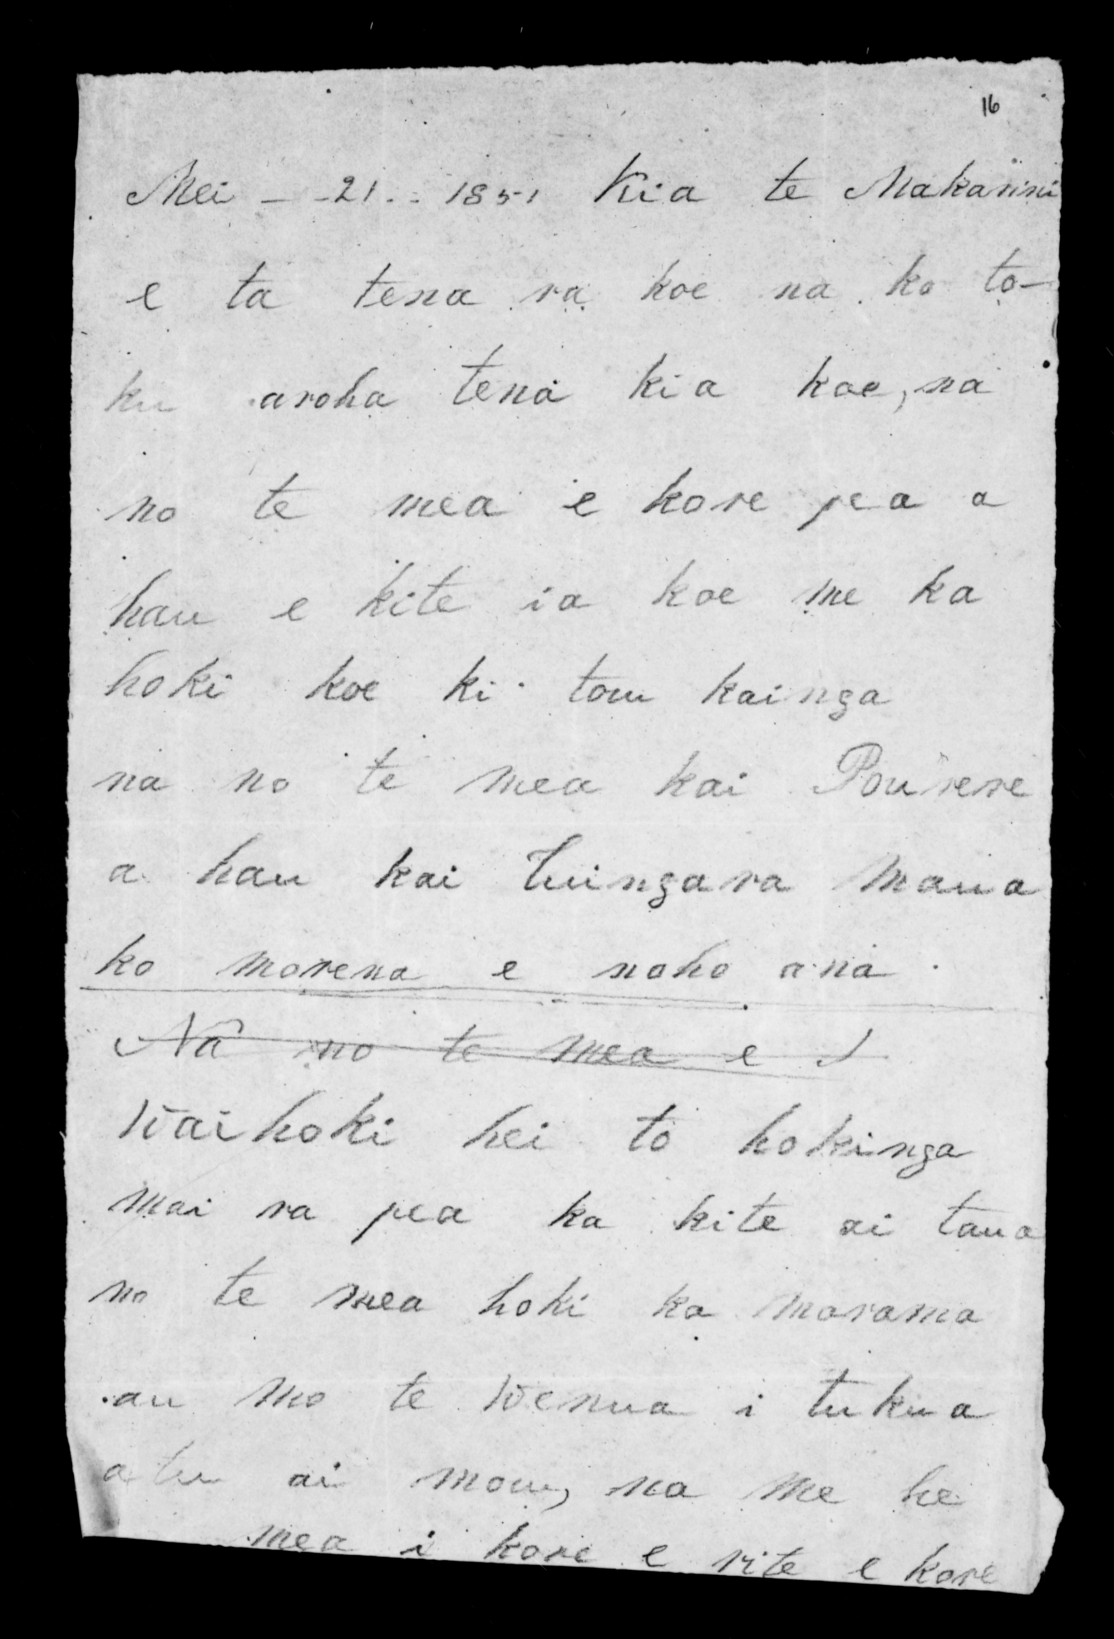 16
Mei - - 21 . : 1851 Kia te Makarini
e ta tena ra koe na ko to-
ku aroha tena kia koe, na
no te mea e kore pea a
hau e kite ia koe me ka
hoki koe ki tou kainga
na no te mea kai Pourere
a hau kai Tuingara maua
ko morena e noho ana .
Na no te mea e
Waihoki hei to hokinga
mai ra pea ka kite ai taua
no te mea hoki ka marama
au mo te Wenua i tukua
atu ai mou, na me he
mea i kore e rite e kore